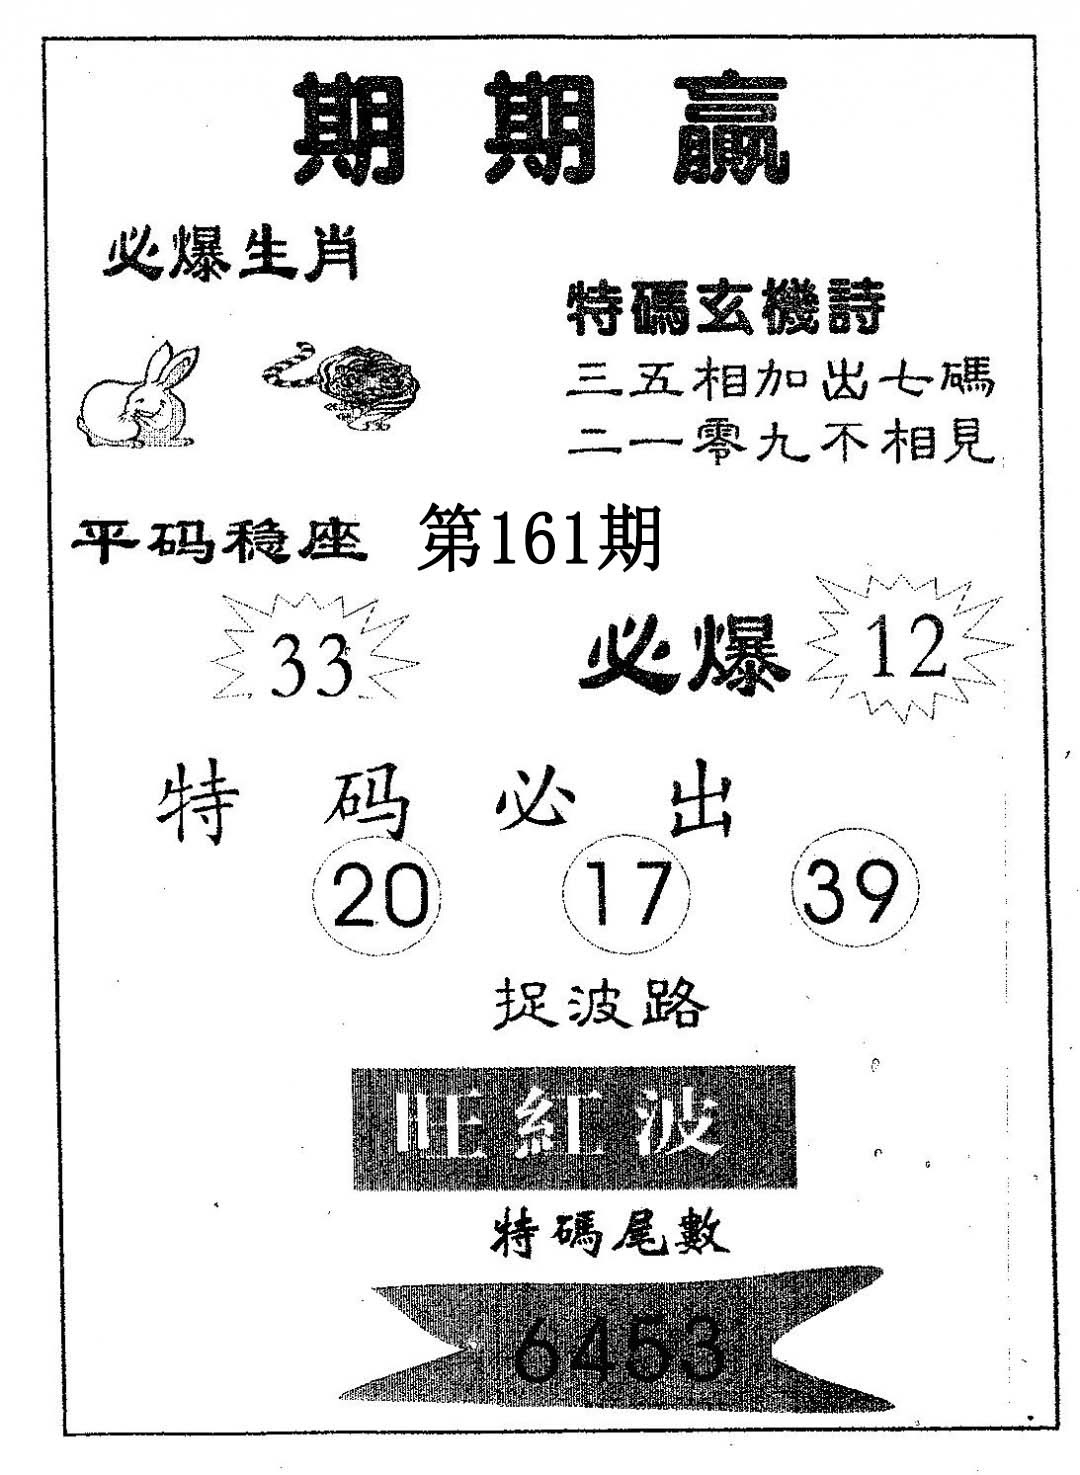 期期贏
必爆生肖
特碼玄機詩
三五相加出七碼
二一零九不相見
平码稳座 第161期
33 必爆 12
特码必出
20 17 39
捉波路
旺紅波
特碼尾數
6453